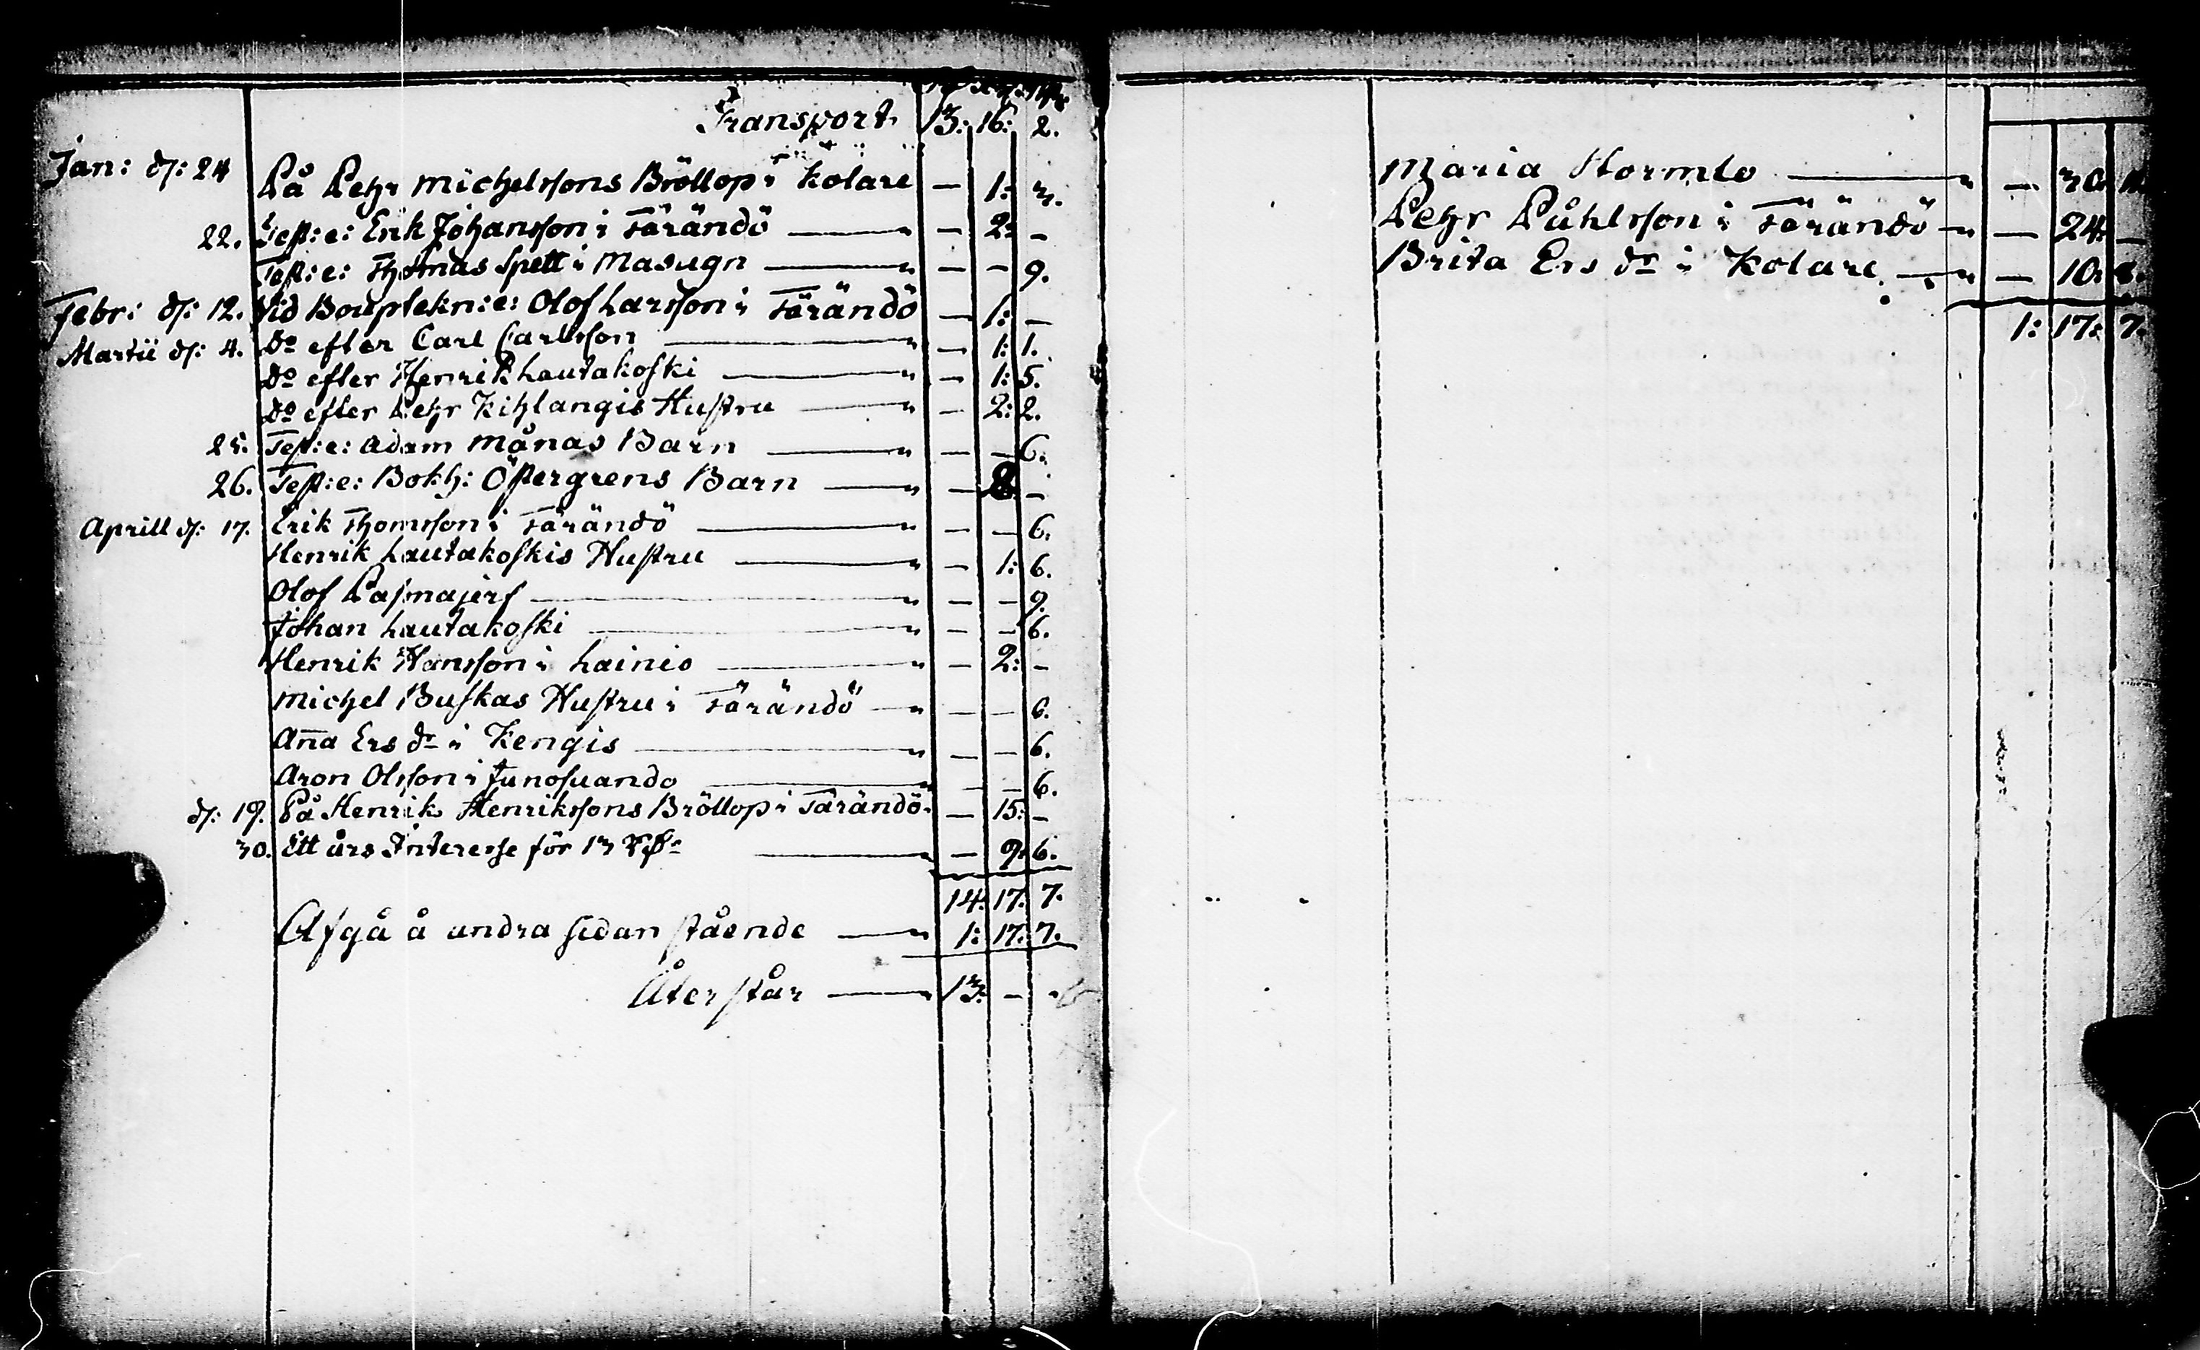 Transport 13: 16: 2.
Jan: d: 24 På Pehr Michelssons Bröllop i Kolare — 1: 3.
22. Test: e: Erik Johansson i Tärändö — — 2: —
Test: e: Thomas Spett i Masugn — — — 9.
Febr: d: 12. Vid Bouptekn: e: Olof Larsson i Tärändö — 1: —
Martii d: 4. do efter Carl Carlsson — — 1: 1.
do efter Henrik Lautakoski — — 1: 5.
do efter Pehr Kihlangis Hustru — — 2: 2.
25. Test: e: Adam Månas Barn — — — 6.
26. Test: e: Bokh: Östergrens Barn — — 8. —
Aprill d: 17. Erik Thomsson i Tärändö — — — 6.
Henrik Lautakoskis Hustru — — 1: 6.
Olof — — — 9.
Johan Lautakoski — — — 6.
Henrik Hansson i Lainio — — 2: —
Michel Buskas Hustru i Tärändö — — — 6.
Anna Ers dr i Kengis — — — 6.
Aron Olsson i Junosuando — — — 6.
d: 19. På Henrik Henrikssons Bröllop i Tärändö. — 15: —
30. Ett års Interesse för 13 — — 9: 6.
14: 17: 7.
Afgå å andra sidan stående — 1: 17: 7.
Återstår — 13: — —
Maria Stormlo — — 30:
Pehr Påhlsson i Tärändö — — 24: —
Brita Ers dr i Kolare — — 10: 8.
1: 17: 7.